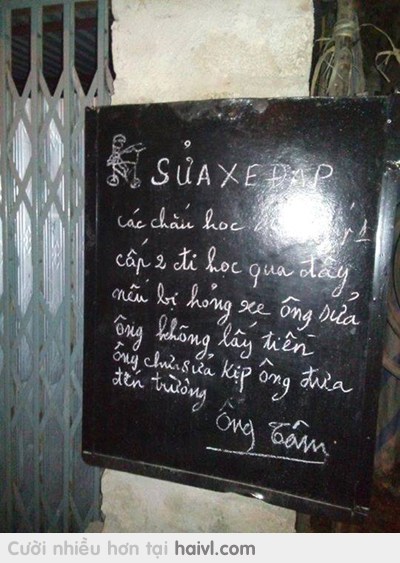 SỬA XE ĐẠP
các cháu học cấp 1
cấp 2 đi học qua đây
nếu bị hỏng xe ông sửa
ông không lấy tiền
ông chưa sửa kịp ông đưa
đến trường
Ông Tâm
Cười nhiều hơn tại haivl.com